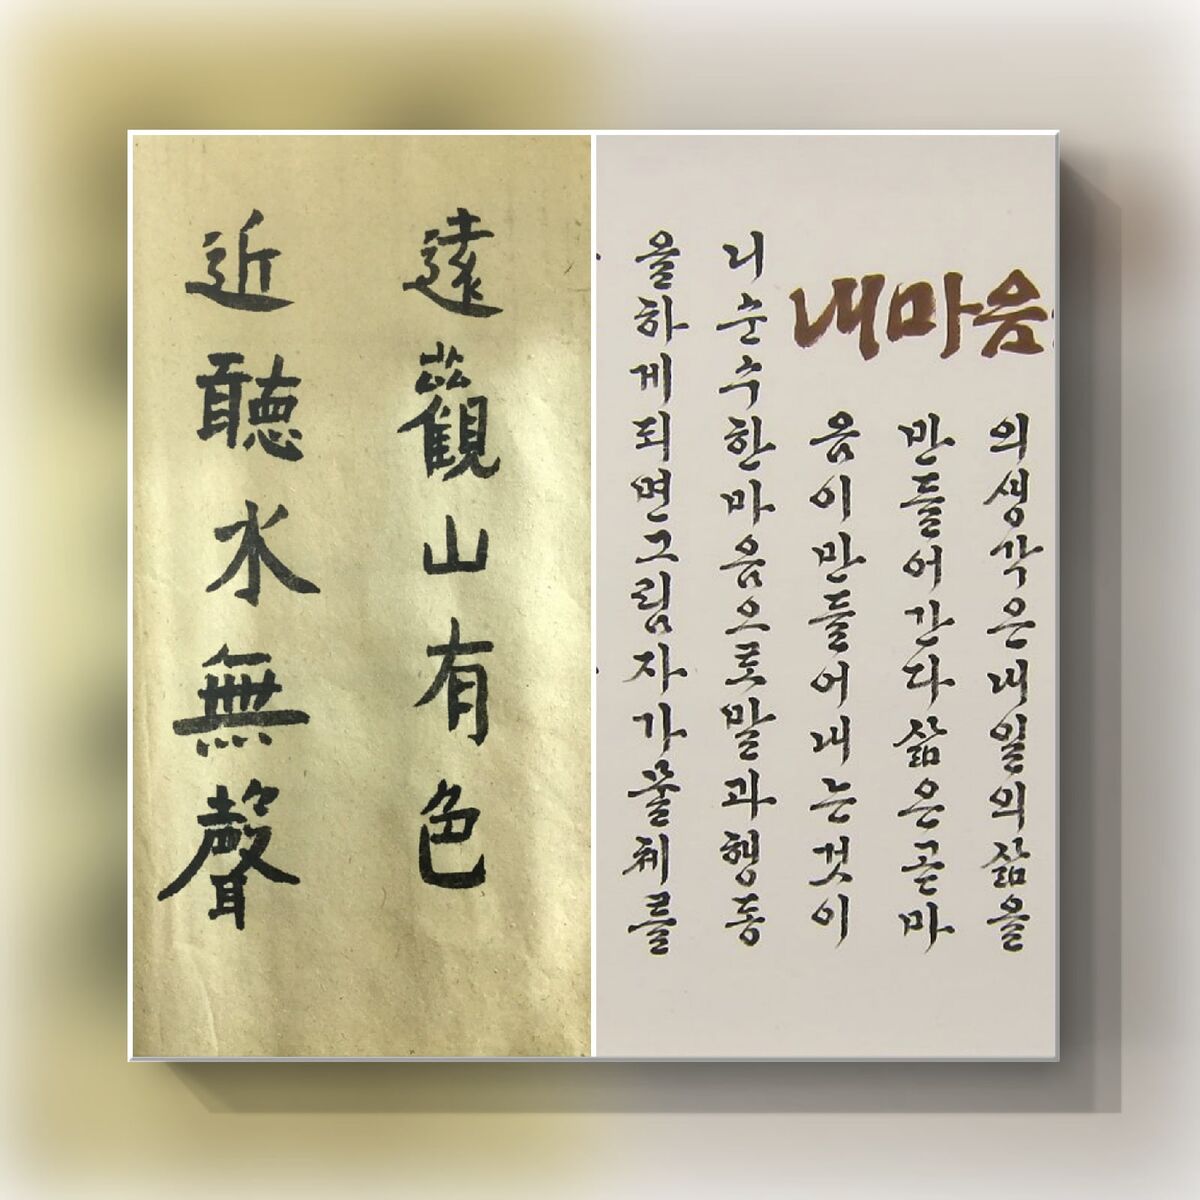 遠觀山有色
近聽水無聲
내마음
의생각은내일의삶을
만들어간다삶은곧마
음이만들어내는것이
니순수한마음으로말과행동
을하게되면그림자가물체를